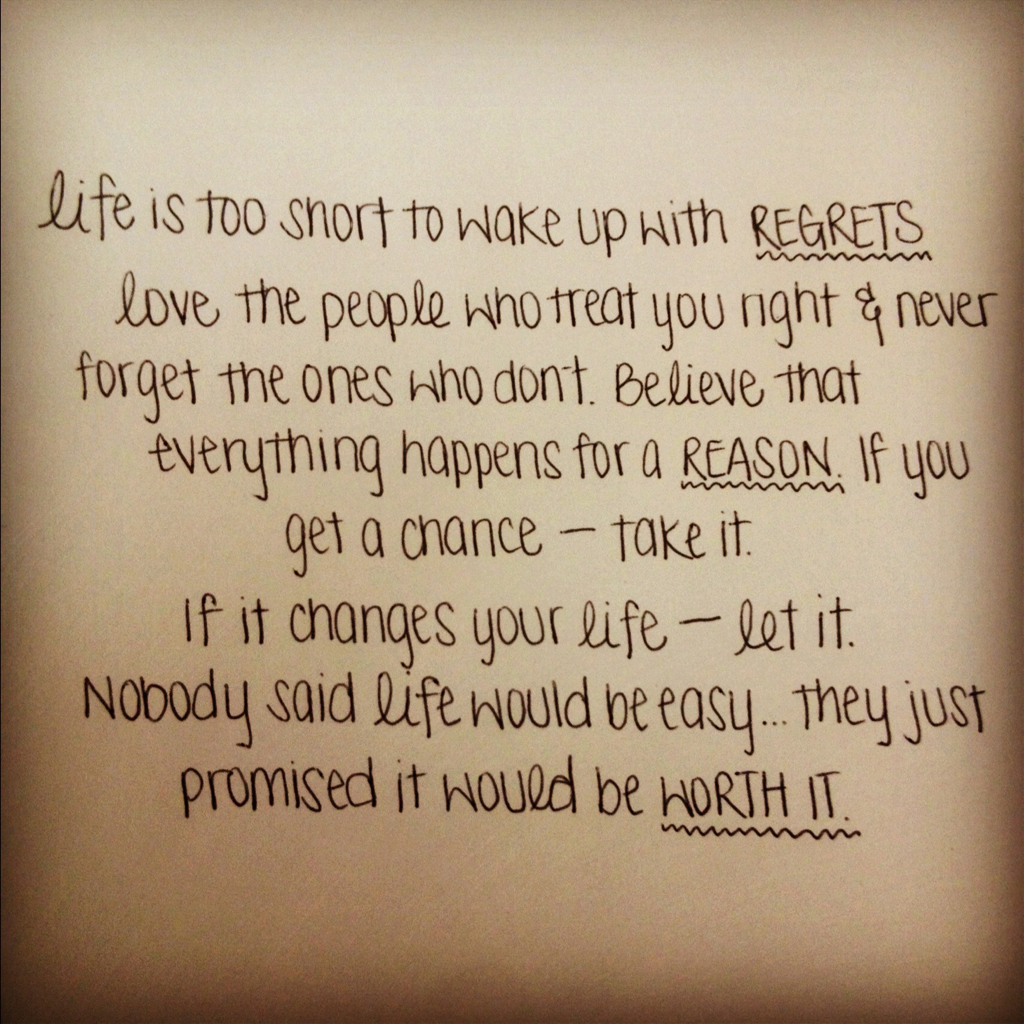 life is too short to wake up with REGRETS
love the people who treat you right & never
forget the ones who don't. Believe that
everything happens for a REASON. If you
get a chance — take it.
If it changes your life — let it.
Nobody said life would be easy... they just
promised it would be WORTH IT.